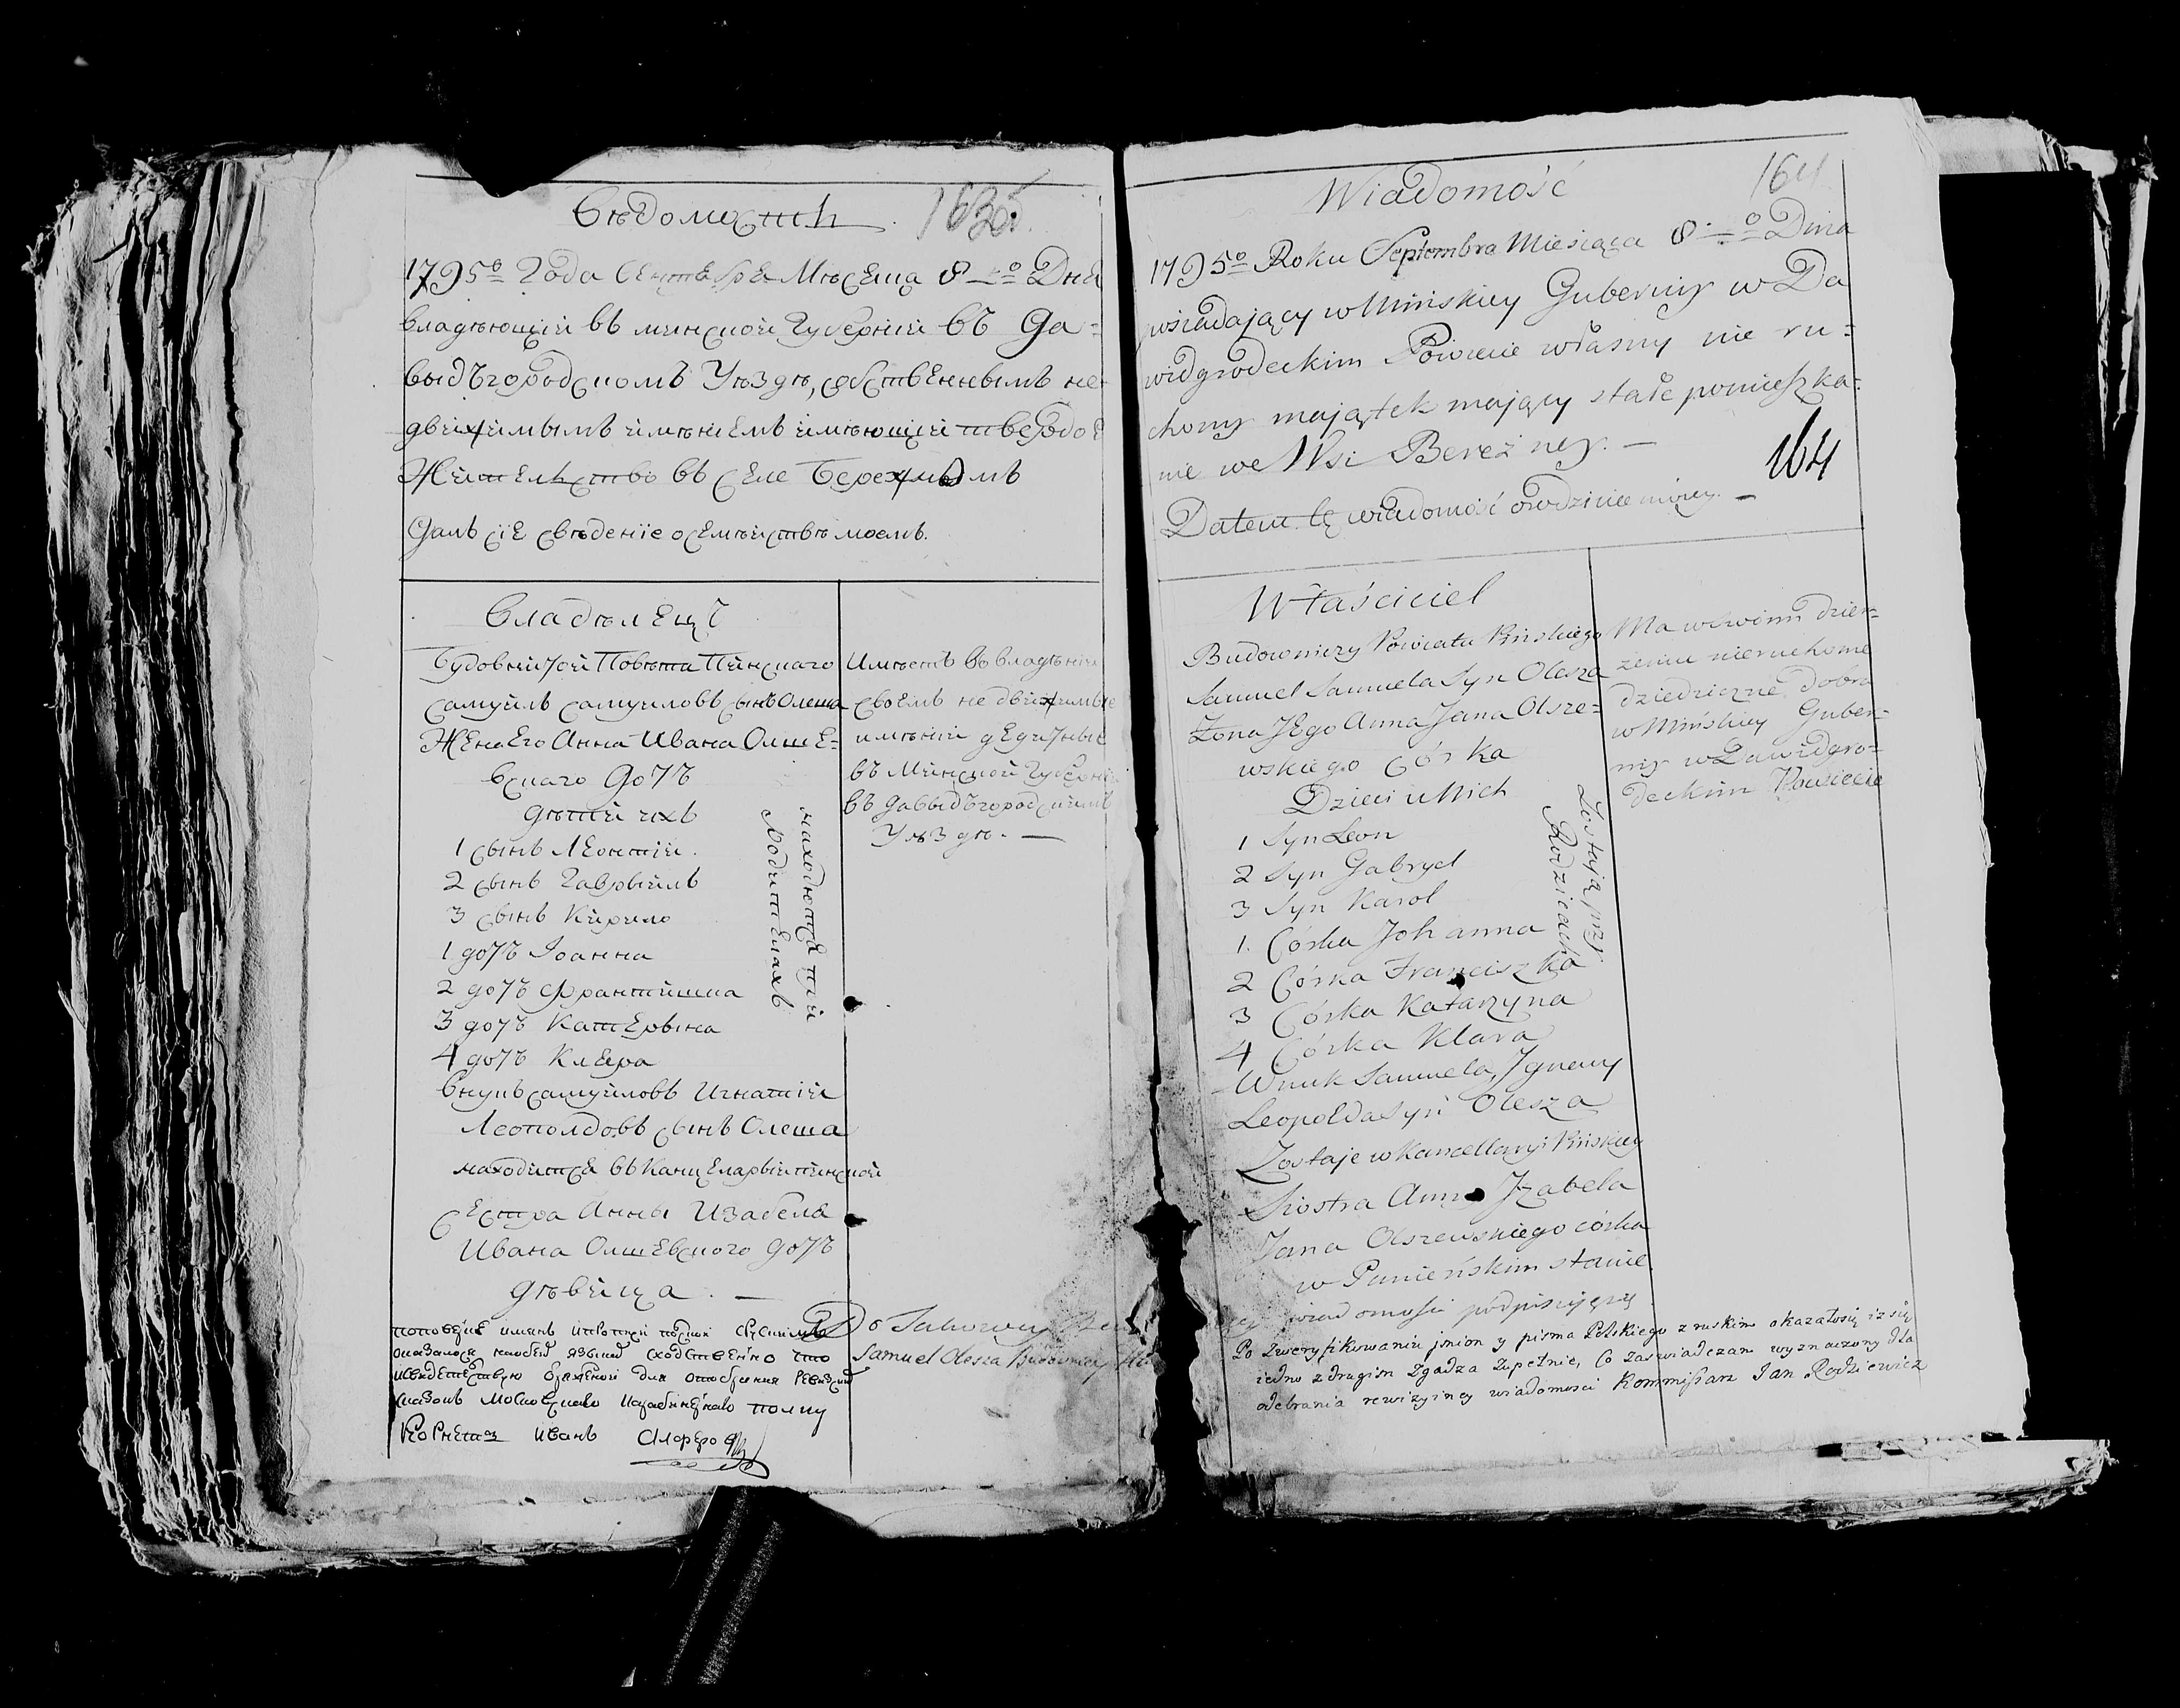 Вѣдомость
1635
1795º Года Сентебре Мѣсеца 8º Дне
владѣющій въ минской Губерніи въ Да=
выдъгородскомъ Уѣздѣ, собственнымъ не=
движимымъ имѣніемъ имѣющій твердое
Жительство въ селе Бережномъ
Далъ сіе свѣденіе о семѣйствѣ моемъ.
Владѣлецъ
Будовничей Повѣта Пинскаго
самуиль самуиловъ сынъ Олеша
Жена Его Анна Ивана Олше=
вскаго дочъ
дѣтей ихъ
1 сынъ Леонтій
2 сынъ Гавріилъ
3 сынъ Кирило
1 дочъ Іоанна
2 дочъ Франтишка
3 дочъ Катерына
4 дочъ Клера
находютце при
Родителахъ
внукъ самуиловъ Игнатій
Леополдовъ сынъ Олеша
находитсе въ Канцеларыи пинской
Сестра Анны Изабеле
Ивана Олшевского дочъ
дѣвица. —
Имѣетъ во владѣніи
своемъ не движимые
имѣніи дедичные
въ Минской Губерніи
въ давыдъгородскимъ
Уѣздѣ. —
Корнетъ Иванъ
Do Takowey
Samuel Olesza Budowniczy
Wiadomość
164
1795º Roku Septembra Miesiąca 8º Dnia
posiadający w Minskiey Gubernij w Da
widgrodeckim Powiecie własny nie ru=
chomy majątek mający stałe pomieszka=
nie we Wsi Bereżney. —
164
Datem tę wiadomość o rodzinie mojey. —
Właściciel
Budowniczy Powiatu Pinskiego
Samuel Samuela Syn Olesza
Żona JEgo Anna Jana Olsze=
wskiego Córka
Dzieci u Nich
1 Syn Leon
2 Syn Gabryel
3 Syn Karol
1. Córka Johanna
2 Córka Franciszka
3 Córka Katarzyna
4 Córka Klara
Zostają przy
Rodzicach
Wnuk Samuela, Jgnacy
Leopolda Syn Olesza
Zostaje w Kancellaryi Pinskiey
Siostra Anny Jzabela
Jana Olszewskiego córka
w Panieńskim stanie
wiadomości podpisujący
Ma w swoim dzier=
żeniu nieruchome
dziedziczne dobra
w Mińskiey Guber=
nij w Dawidgro=
deckim Powiecie
Po zweryfikowaniu jmion y pisma Polskiego z ruskim okazałosię iż się
iedno z drugim zgadza zupełnie, Co zaswiadczam wyznaczony dla
odebrania rewizyiney wiadomosci Kommissarz Jan Rodziewicz